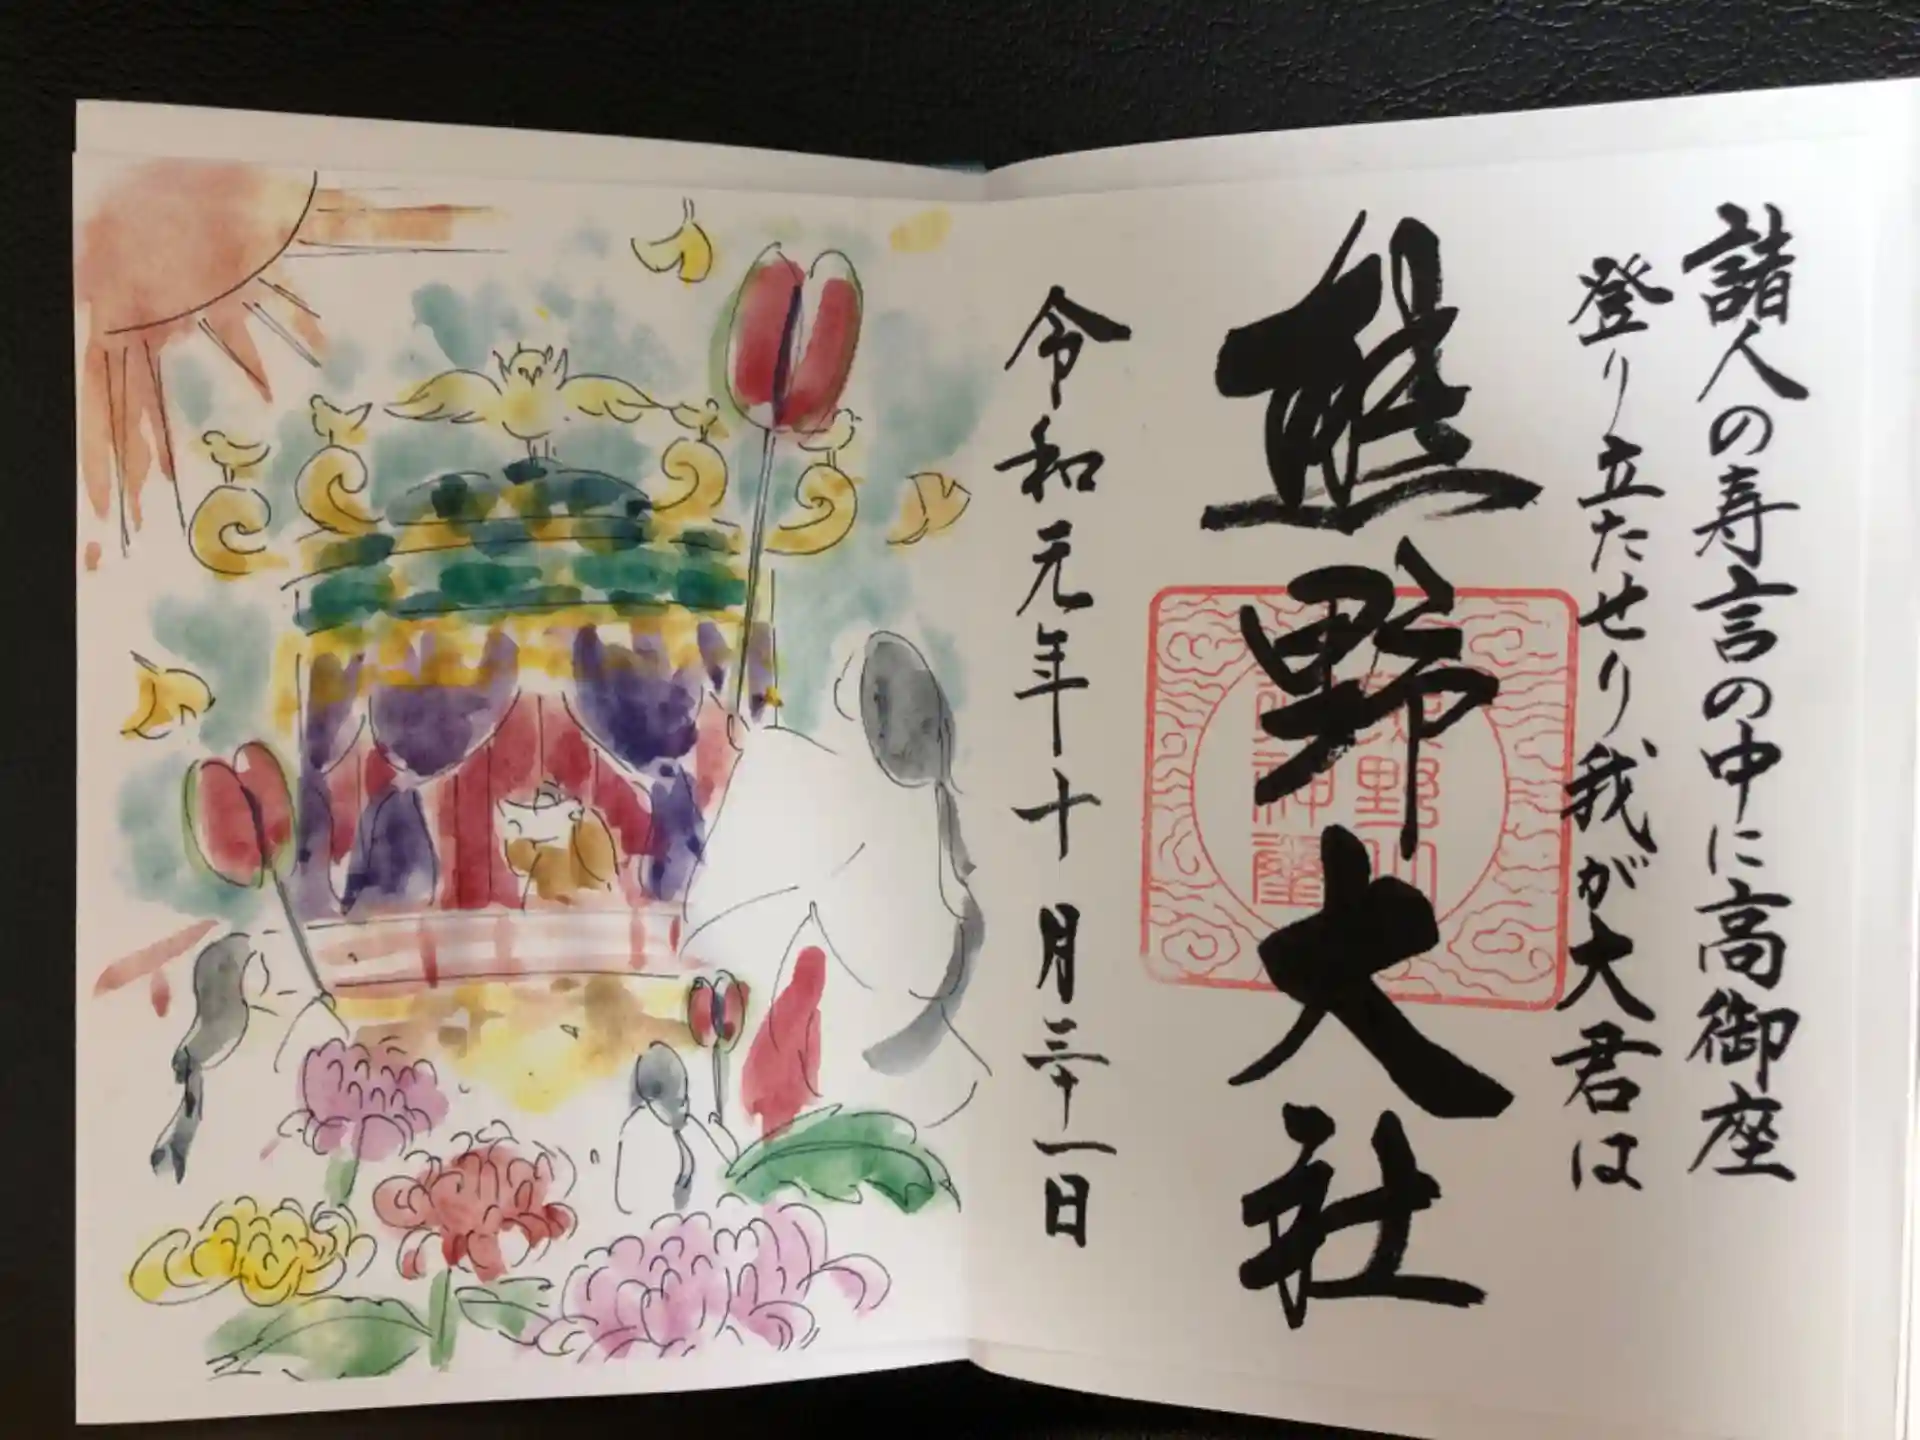 諸人の寿言の中に高御座
登り立たせり我が大君は
熊野大社
令和元年十月三十一日